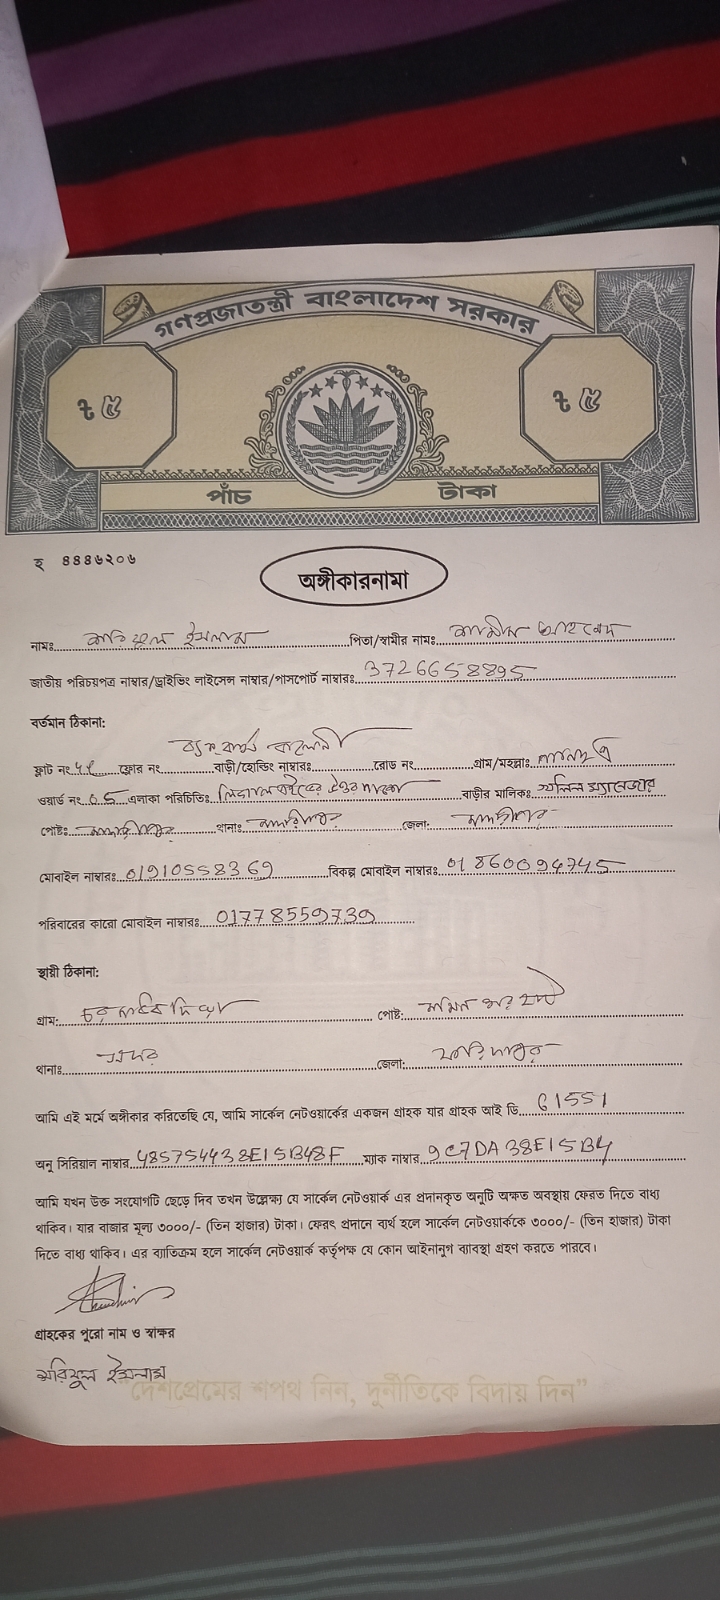 গণপ্রজাতন্ত্রী বাংলাদেশ সরকার
৳ ৫ ৳ ৫
পাঁচ টাকা
হ ৪৪৪৬২০৬
অঙ্গীকারনামা
নামঃ ইসলাম পিতা/স্বামীর নামঃ আহমেদ
জাতীয় পরিচয়পত্র নাম্বার/ড্রাইভিং লাইসেন্স নাম্বার/পাসপোর্ট নাম্বারঃ 3726658895
বর্তমান ঠিকানা:
ফ্লাট নং ফ্লোর নং বাড়ী/হোল্ডিং নাম্বারঃ রোড নং গ্রাম/মহল্লাঃ
ওয়ার্ড নং 05 এলাকা পরিচিতিঃ বাড়ীর মালিকঃ ম্যানেজার
পোষ্টঃ থানাঃ জেলা:
মোবাইল নাম্বারঃ 01910558369 বিকল্প মোবাইল নাম্বারঃ 01860094745
পরিবারের কারো মোবাইল নাম্বারঃ 01778559739
স্থায়ী ঠিকানা:
গ্রাম: চর পোষ্ট:
থানাঃ সদর জেলা: ফরিদপুর
আমি এই মর্মে অঙ্গীকার করিতেছি যে, আমি সার্কেল নেটওয়ার্কের একজন গ্রাহক যার গ্রাহক আই ডি 61551
অনু সিরিয়াল নাম্বার 485754438E15B48F ম্যাক নাম্বার 9C7DA38E15B4
আমি যখন উক্ত সংযোগটি ছেড়ে দিব তখন উল্লেক্ষ্য যে সার্কেল নেটওয়ার্ক এর প্রদানকৃত অনুটি অক্ষত অবস্থায় ফেরত দিতে বাধ্য
থাকিব। যার বাজার মূল্য ৩০০০/- (তিন হাজার) টাকা। ফেরৎ প্রদানে ব্যর্থ হলে সার্কেল নেটওয়ার্ককে ৩০০০/- (তিন হাজার) টাকা
দিতে বাধ্য থাকিব। এর ব্যতিক্রম হলে সার্কেল নেটওয়ার্ক কর্তৃপক্ষ যে কোন আইনানুগ ব্যাবস্থা গ্রহণ করতে পারবে।
গ্রাহকের পুরো নাম ও স্বাক্ষর
ইসলাম
"দেশপ্রেমের শপথ নিন, দুর্নীতিকে বিদায় দিন"